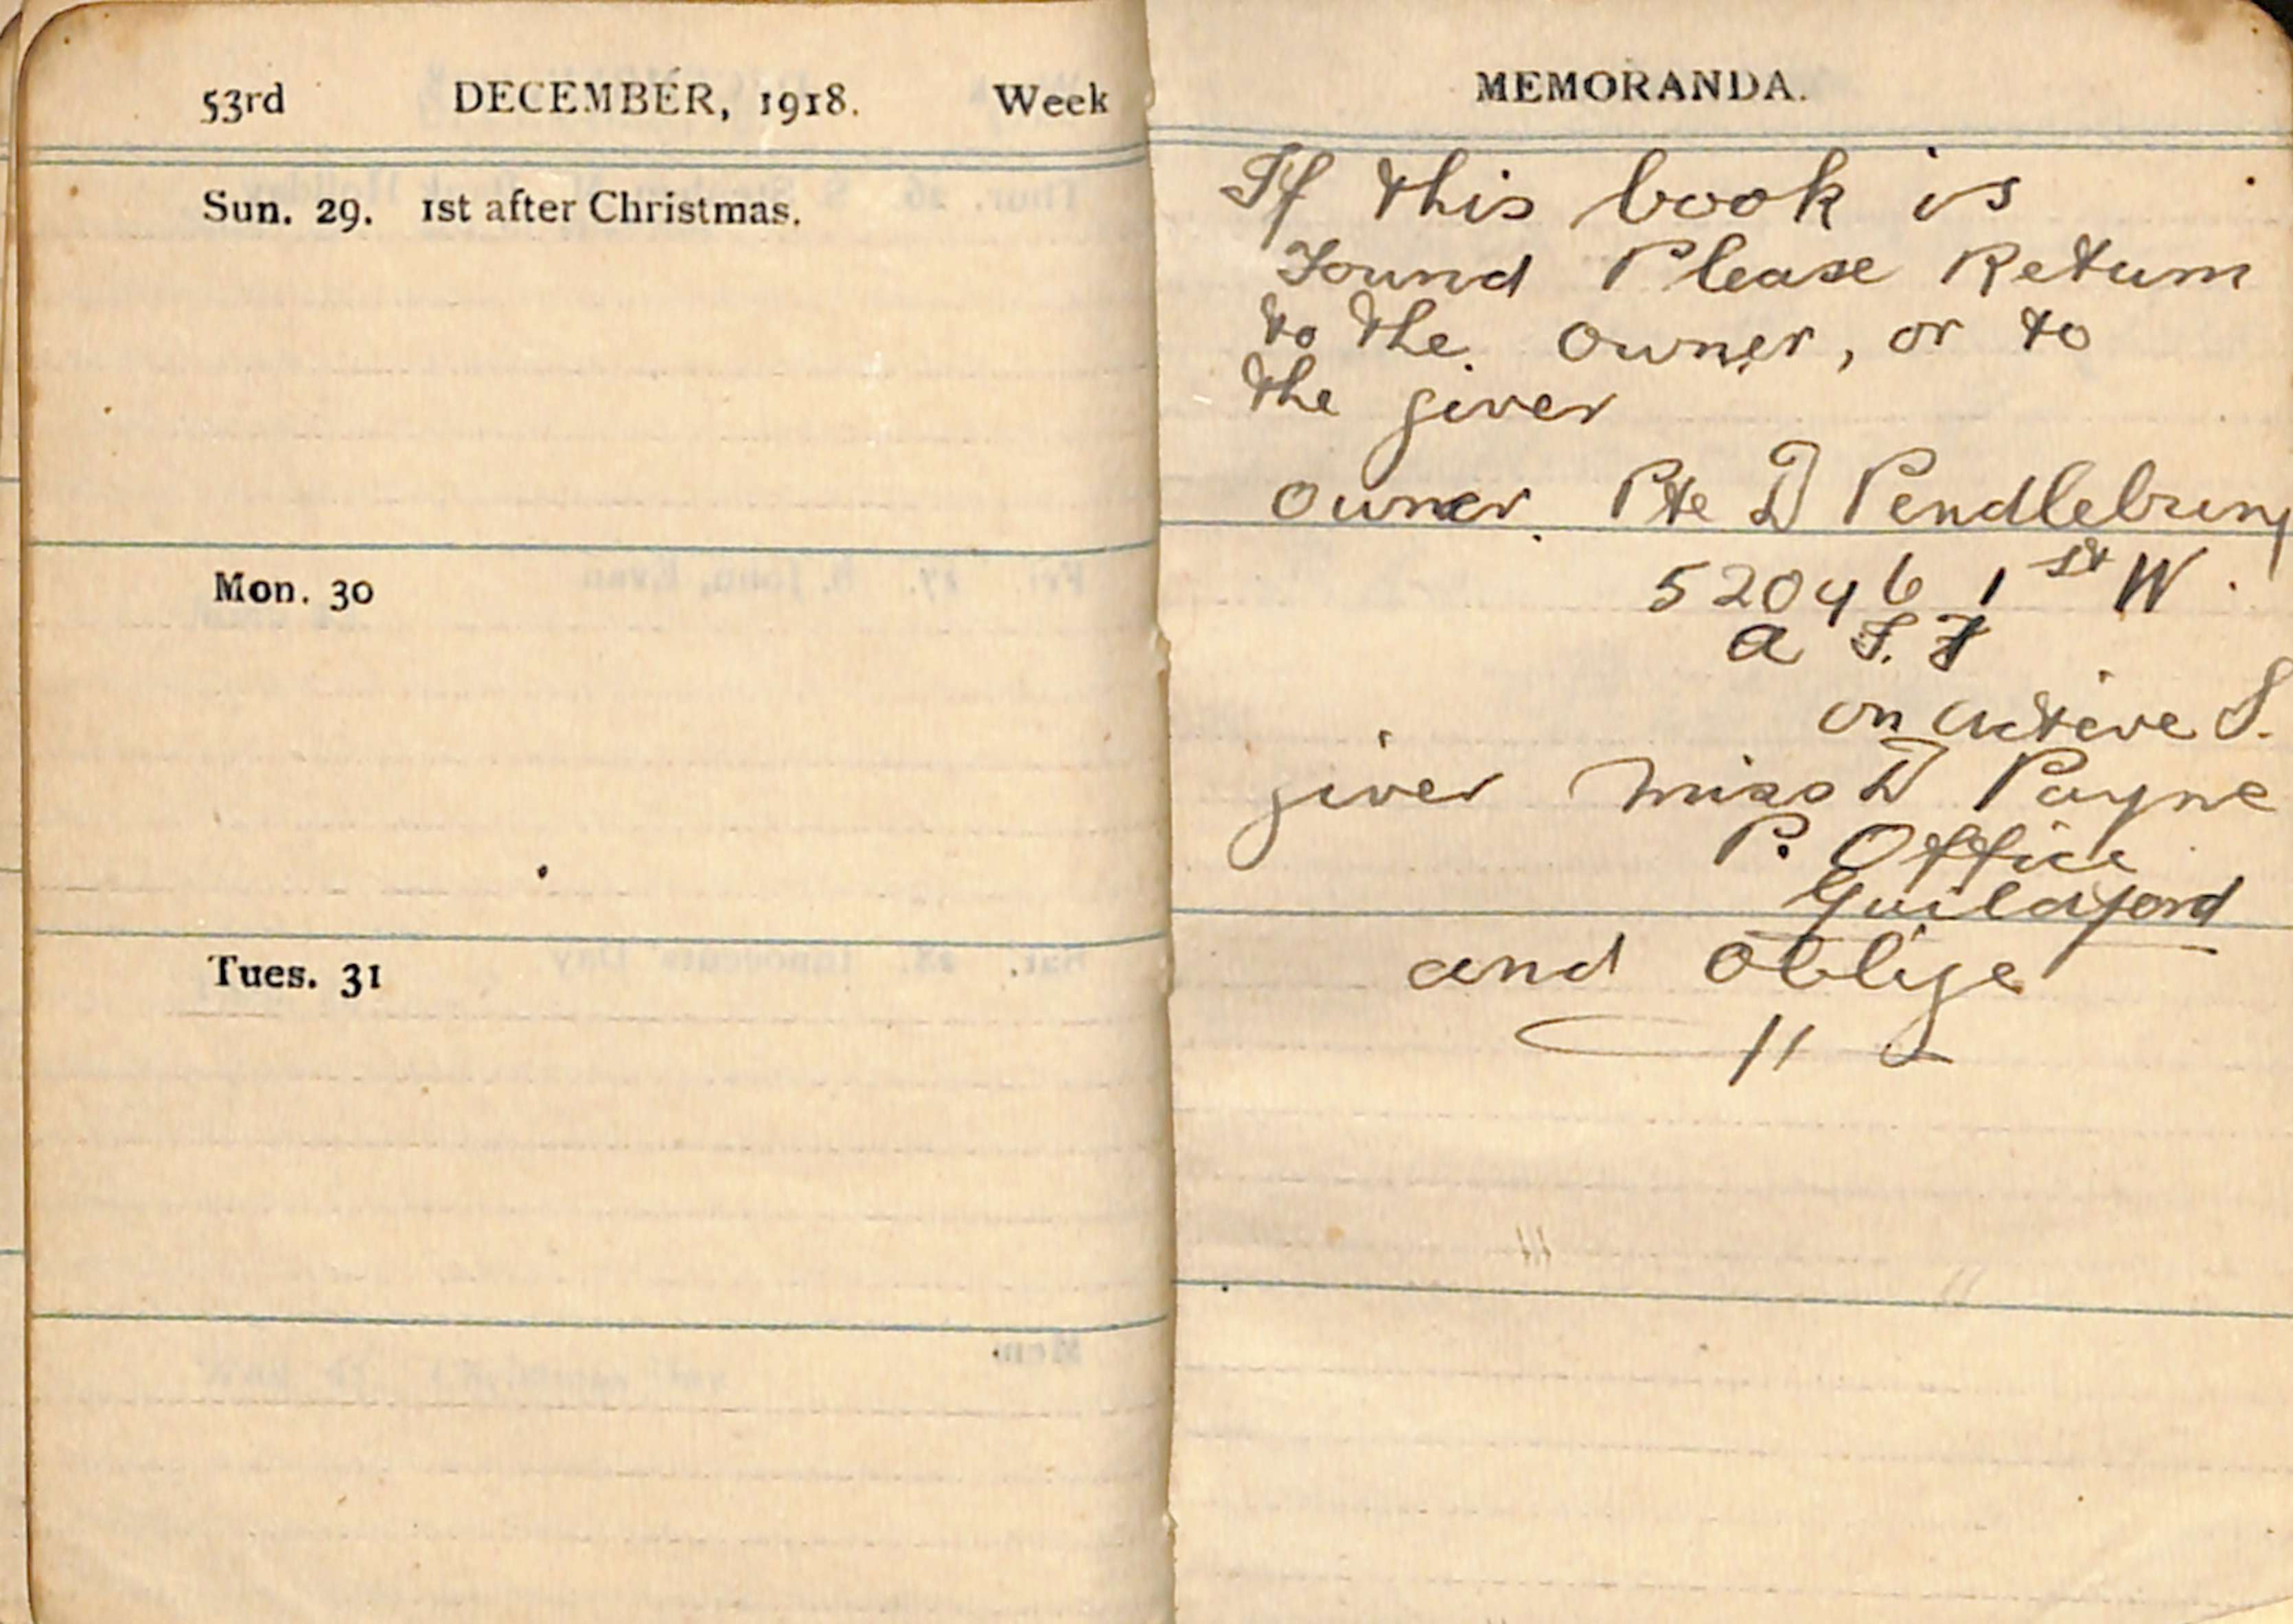 53rd DECEMBER, 1918. Week
Sun. 29. 1st after Christmas.
Mon. 30
Tues. 31
MEMORANDA.
If this book is
Found Please Return
to the owner, or to
the giver
owner Pte D Pendlebury
52046 1st W
a S. F
on active S.
giver Miss D Payne
P. Office
Guildford
and oblige